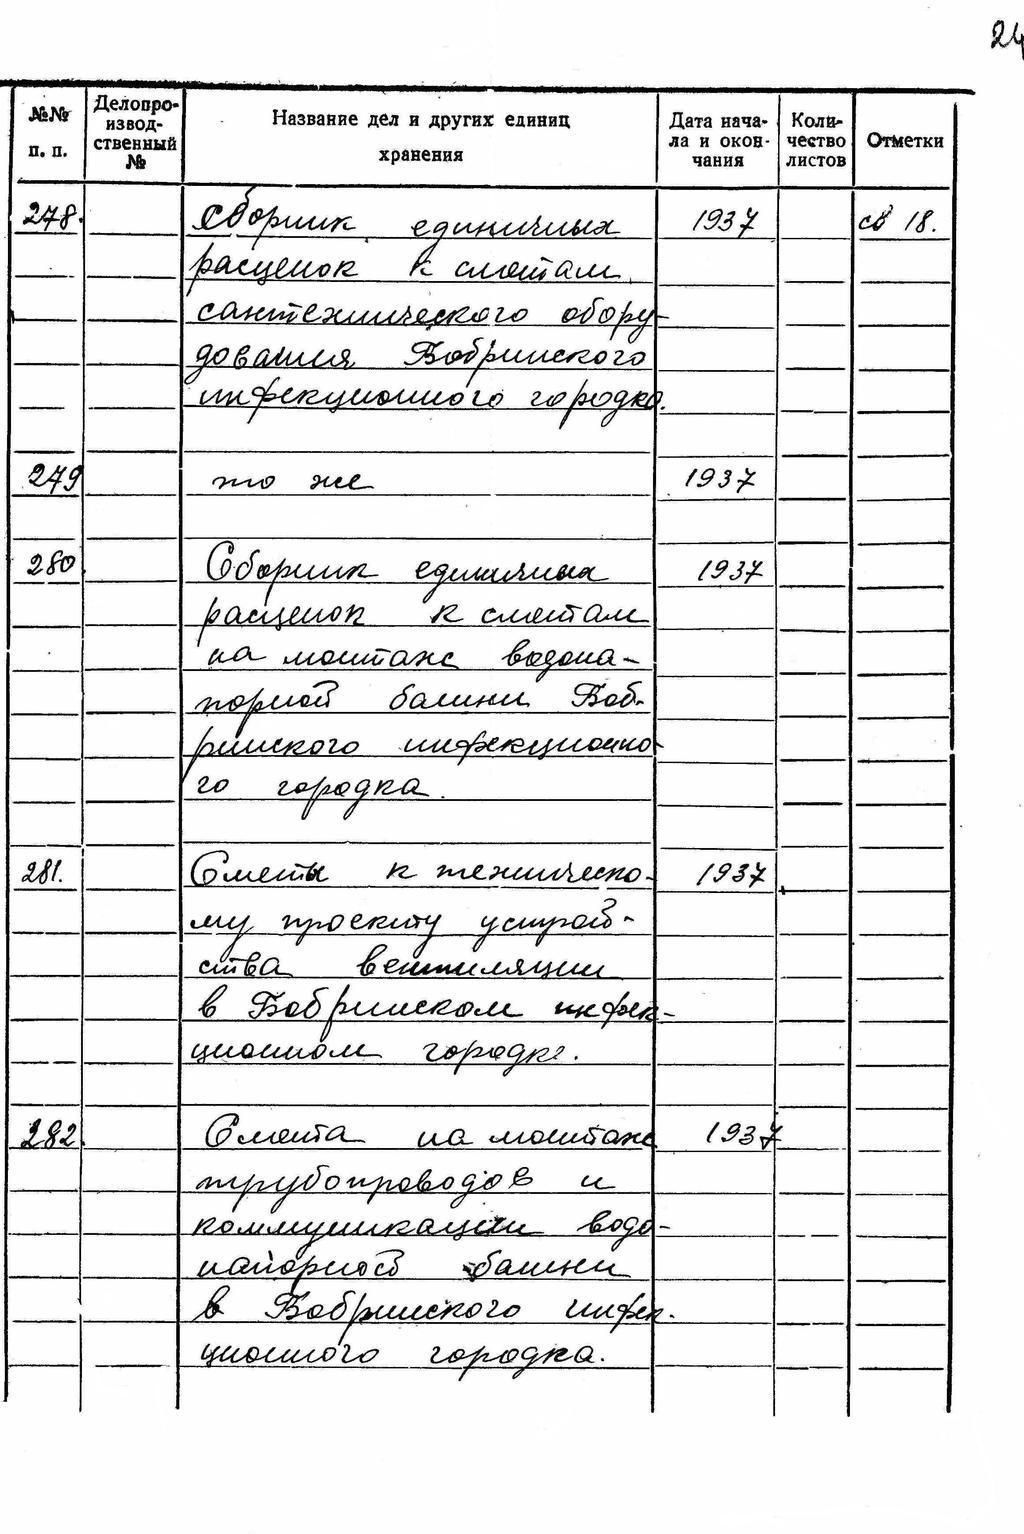 24
№№ п. п.
Делопро-изводственный №
Название дел и других единиц хранения
Дата нача-ла и окон-чания
Коли-чество листов
Отметки
278. Сборник единичных 1937 св 18.
расценок к сметам
сантехнического обору-
дования Бобринского
инфекционного городка.
279 то же 1937
280. Сборник единичных 1937
расценок к сметам
на монтаж водона-
порной башни Боб-
ринского инфекционно-
го городка.
281. Сметы к техническо- 1937
му проекту устрой-
ства вентиляции
в Бобринском инфек-
ционном городке.
282. Смета на монтаж 1937
трубопроводов и
коммуникации водо-
напорной башни
в Бобринского инфек-
ционного городка.